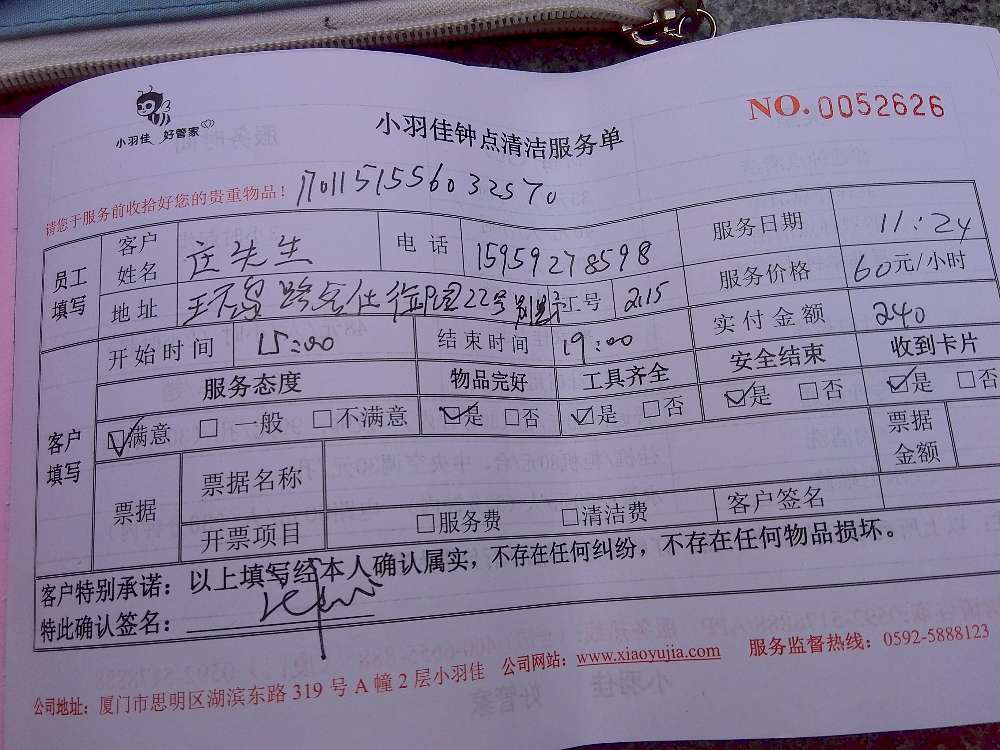 小羽佳 好管家
小羽佳钟点清洁服务单
NO.0052626
请您于服务前收拾好您的贵重物品！
员工填写 客户姓名 庄先生 电话 15959278598 服务日期 11:24
地址 环岛路 22号 工号 2115 服务价格 60元/小时
开始时间 15:00 结束时间 19:00 实付金额 240
客户填写 服务态度 物品完好 工具齐全 安全结束 收到卡片
☑满意 □一般 □不满意 ☑是 □否 ☑是 □否 ☑是 □否 ☑是 □否
票据 票据名称 票据金额
开票项目 □服务费 □清洁费 客户签名
客户特别承诺：以上填写经本人确认属实，不存在任何纠纷，不存在任何物品损坏。
特此确认签名：
公司地址：厦门市思明区湖滨东路319号A幢2层小羽佳 公司网站：www.xiaoyujia.com 服务监督热线：0592-5888123